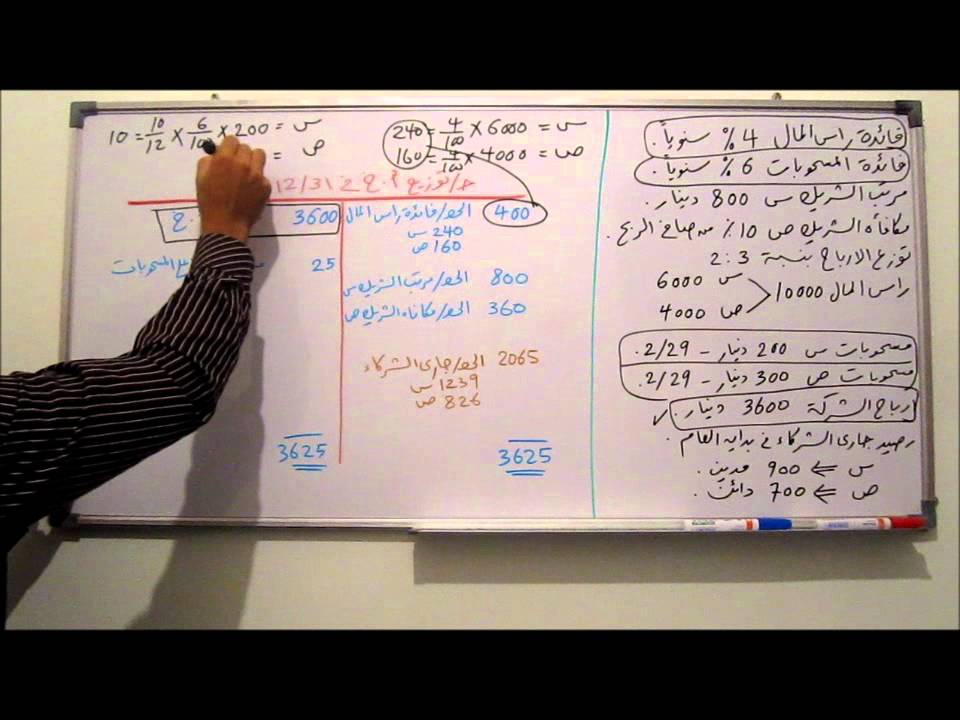 فائدة راس المال 4% سنوياً.
فائدة المسحوبات 6% سنوياً.
مرتب الشريك س 800 دينار.
مكافأة الشريك ص 10% من صافي الربح.
توزع الارباح بنسبة 3 : 2
راس المال 10000
س 6000
ص 4000
مسحوبات س 200 دينار - 2/29.
مسحوبات ص 300 دينار - 2/29.
ارباح الشركة 3600 دينار.
رصيد جارى الشركاء في بداية العام
س ⇐ 900 مدين.
ص ⇐ 700 دائن.
س = 6000 × 4/100 = 240
ص = 4000 × 4/100 = 160
س = 200 × 6/100 × 10/12 = 10
ص =
ح/توزيع أ.خ في 12/31
400 الى ح/فائدة راس المال
240 س
160 ص
800 الى ح/مرتب الشريك س
360 الى ح/مكافاه الشريك ص
2065 الى ح/جارى الشركاء
1239 س
826 ص
3625
3600 خ
25 المسحوبات
3625